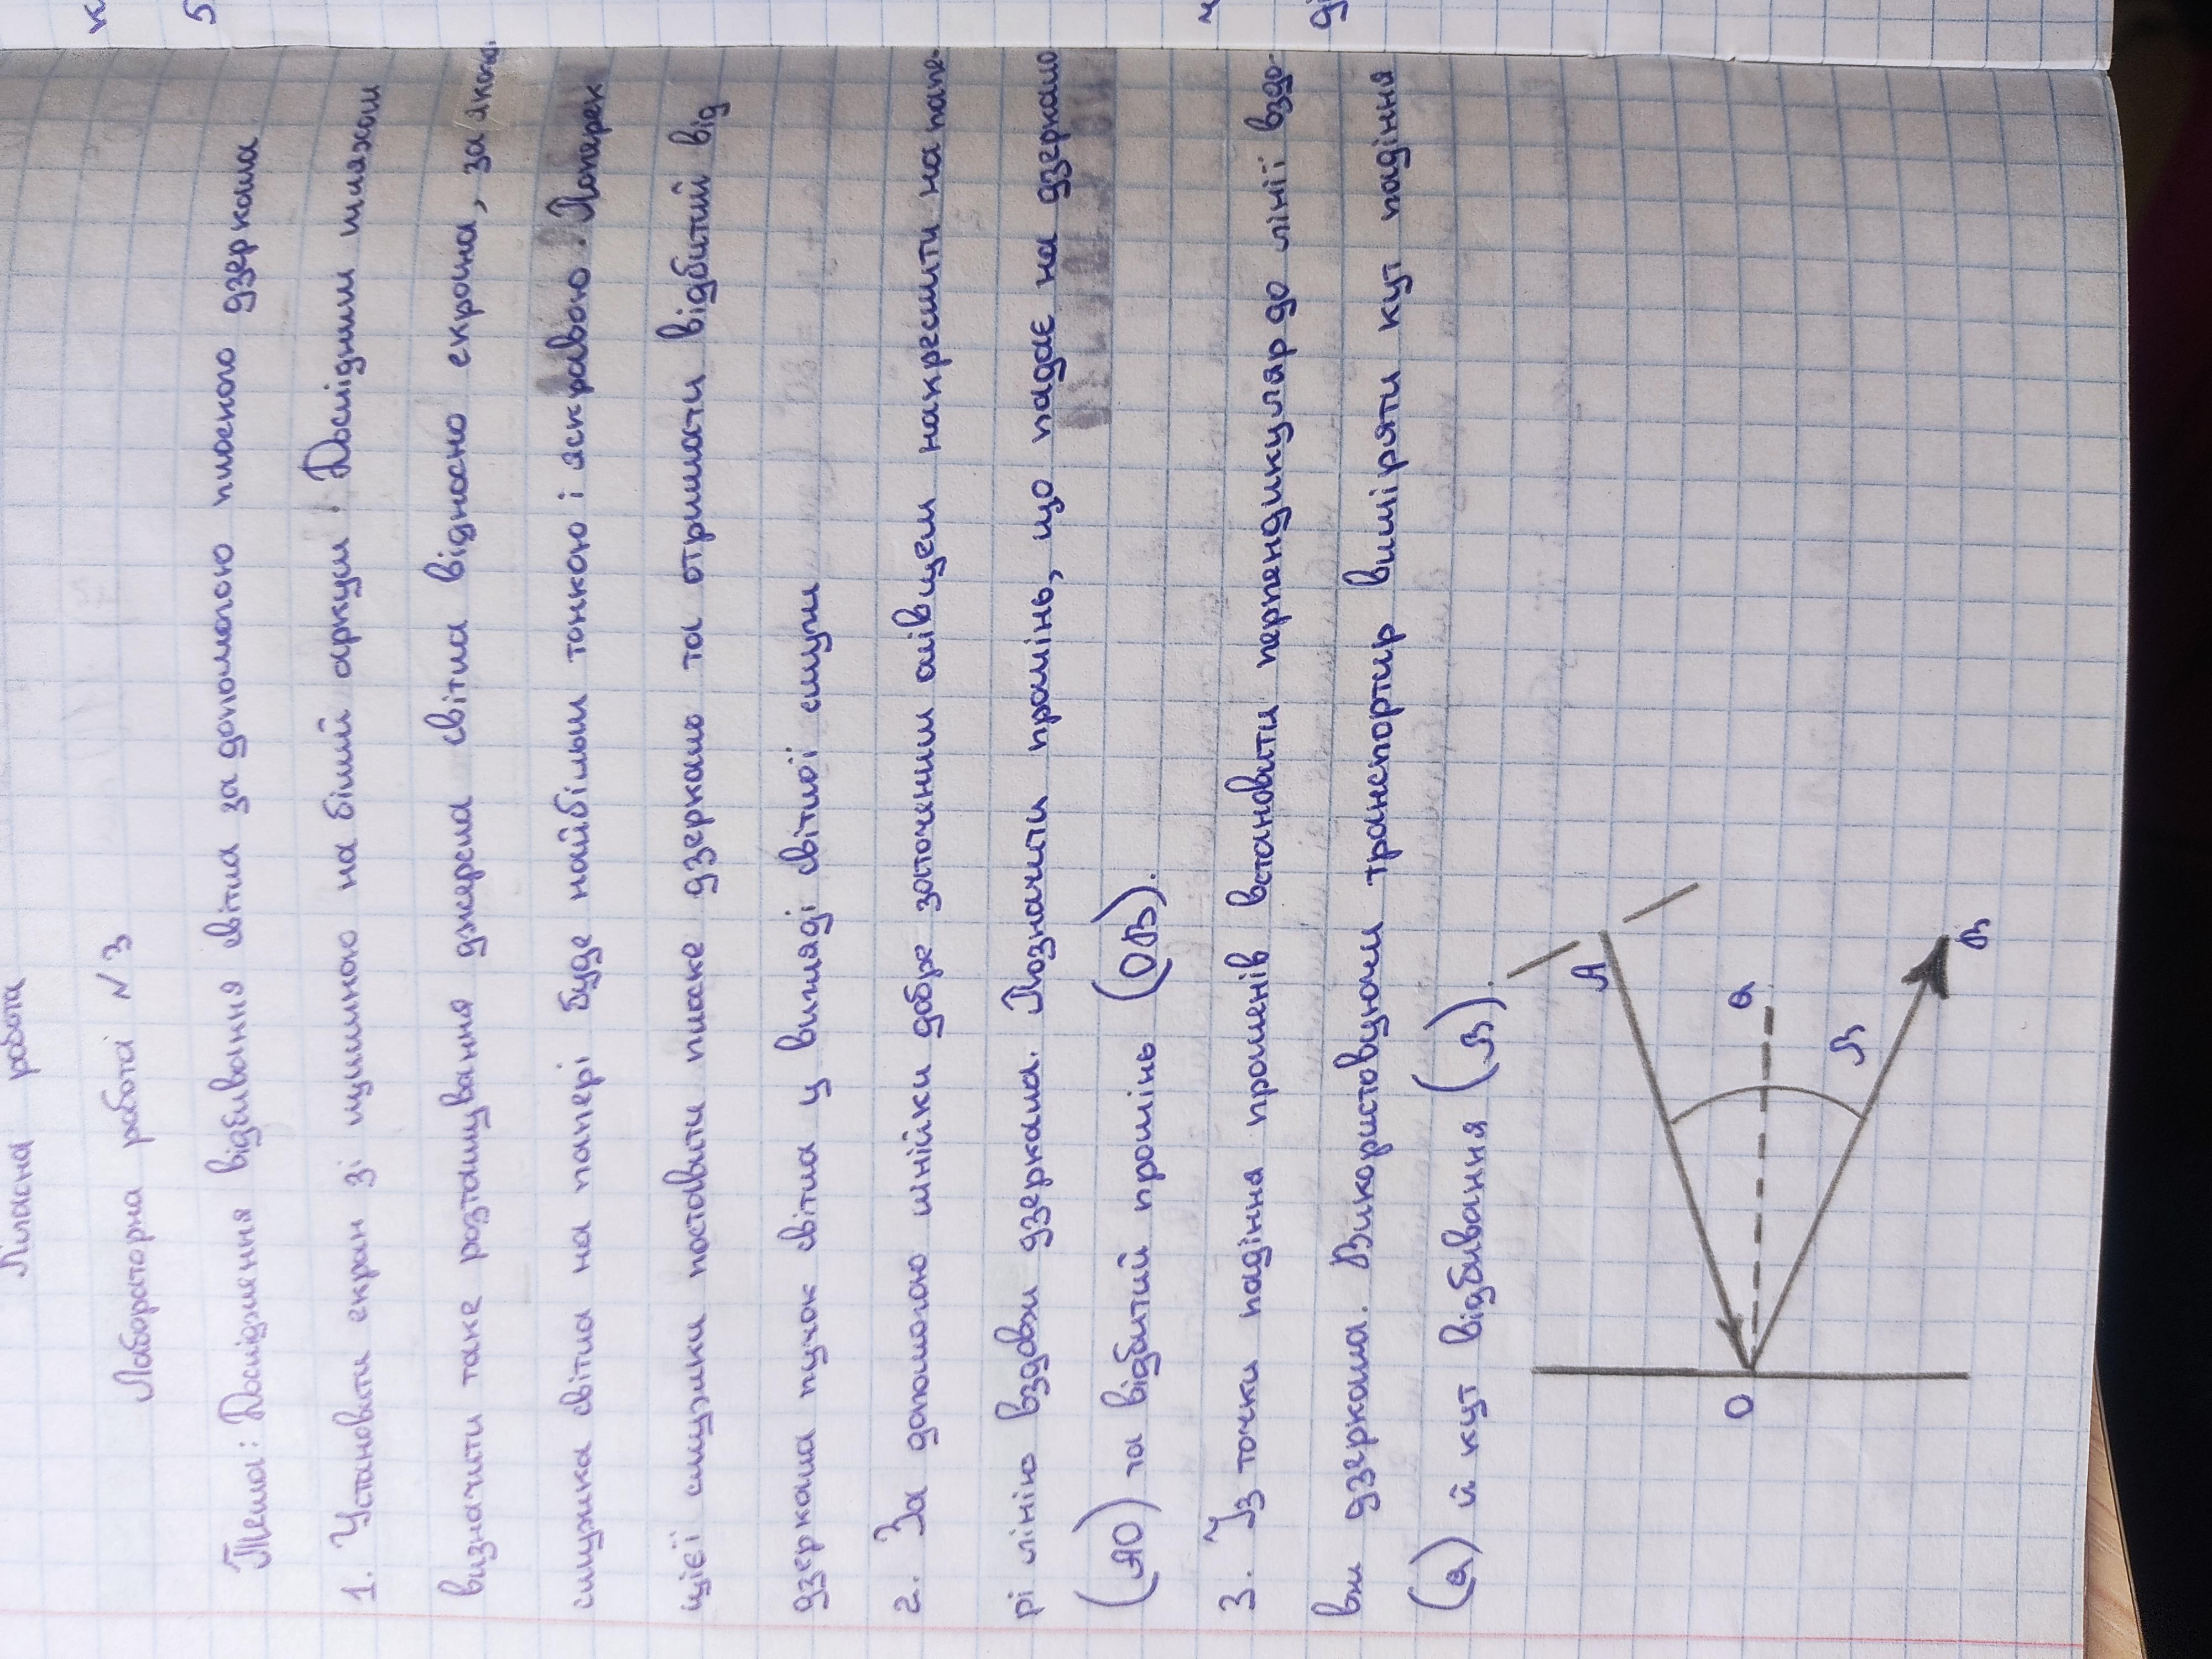 Класна робота
Лабораторна работа №3
Тема: Дослідження відбивання світла за допомогою плоского дзеркала
1. Установити екран зі щілиною на білий аркуш. Дослідним шляхом
визначити таке розташування джерела світла відносно екрана, за якого
смужка світла на папері буде найбільш тонкою і яскравою. Поперек
цієї смужки поставити плоске дзеркало та отримати відбитий від
дзеркала пучок світла у вигляді світлої смуги
2. За допомогою лінійки добре заточеним олівцем накреслити на папе-
рі лінію вздовж дзеркала. Позначити промінь, що падає на дзеркало
(АО) та відбитий промінь (ОВ).
3. Із точки падіння променів встановити перпендикуляр до лінії вздо-
вж дзеркала. Використовуючи транспортир виміряти кут падіння
(а) й кут відбивання (β).
А
а
О
β
В